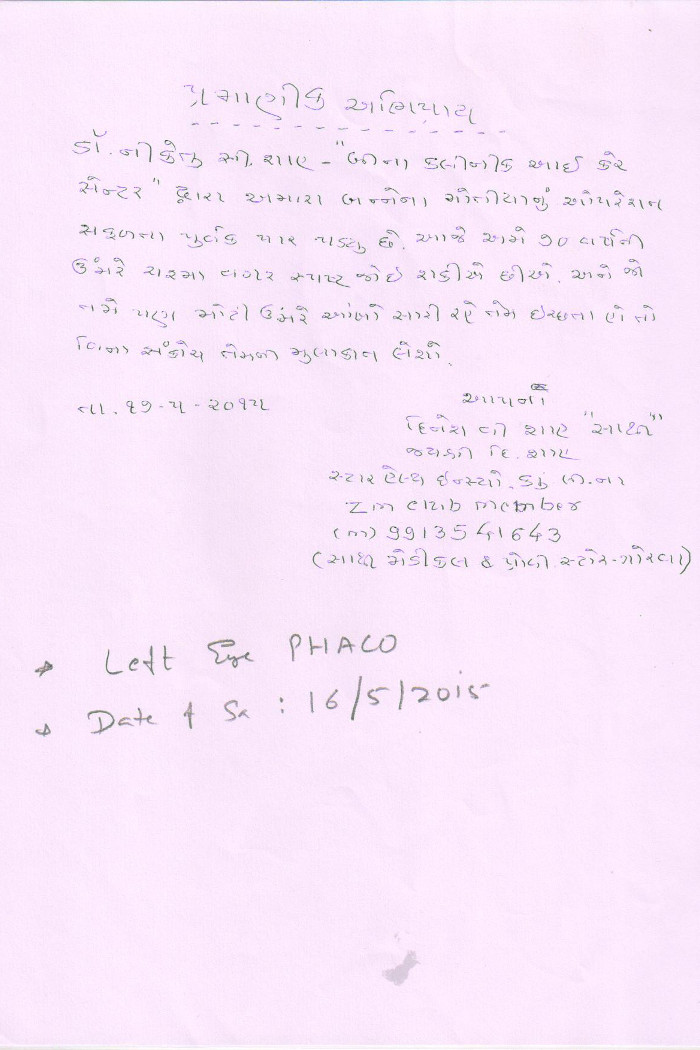 પ્રમાણીક અભિપ્રાય
ડૉ. નીકેતુ સી. શાહ - "બીના કલીનીક આઈ કેર
સેન્ટર" દ્વારા અમારા બન્નેના મોતીયાનું ઓપરેશન
સફળતા પુર્વક પાર પડયુ છે. આજે અમે ૭૦ વર્ષની
ઉંમરે ચશ્મા વગર સ્પષ્ટ જોઇ શકીએ છીએ. અને જો
તમે પણ મોટી ઉંમરે આંખો સારી રહે તેમ ઇચ્છતા હો તો
વિના સંકોચ તેમની મુલાકાત લેશો.
તા. ૧૭-૫-૨૦૧૫
આપનો
દિનેશ વી શાહ "સાથ"
જયશ્રી દિ. શાહ
સ્ટાર હેલ્થ ઇન્સ્યો. કું લી.ના
Zm club member
(m) 9913541643
(સાથ મેડીકલ & પ્રોવી. સ્ટોર-ગોરવા)
→ Left Eye PHACO
→ Date of Sx : 16/5/2015